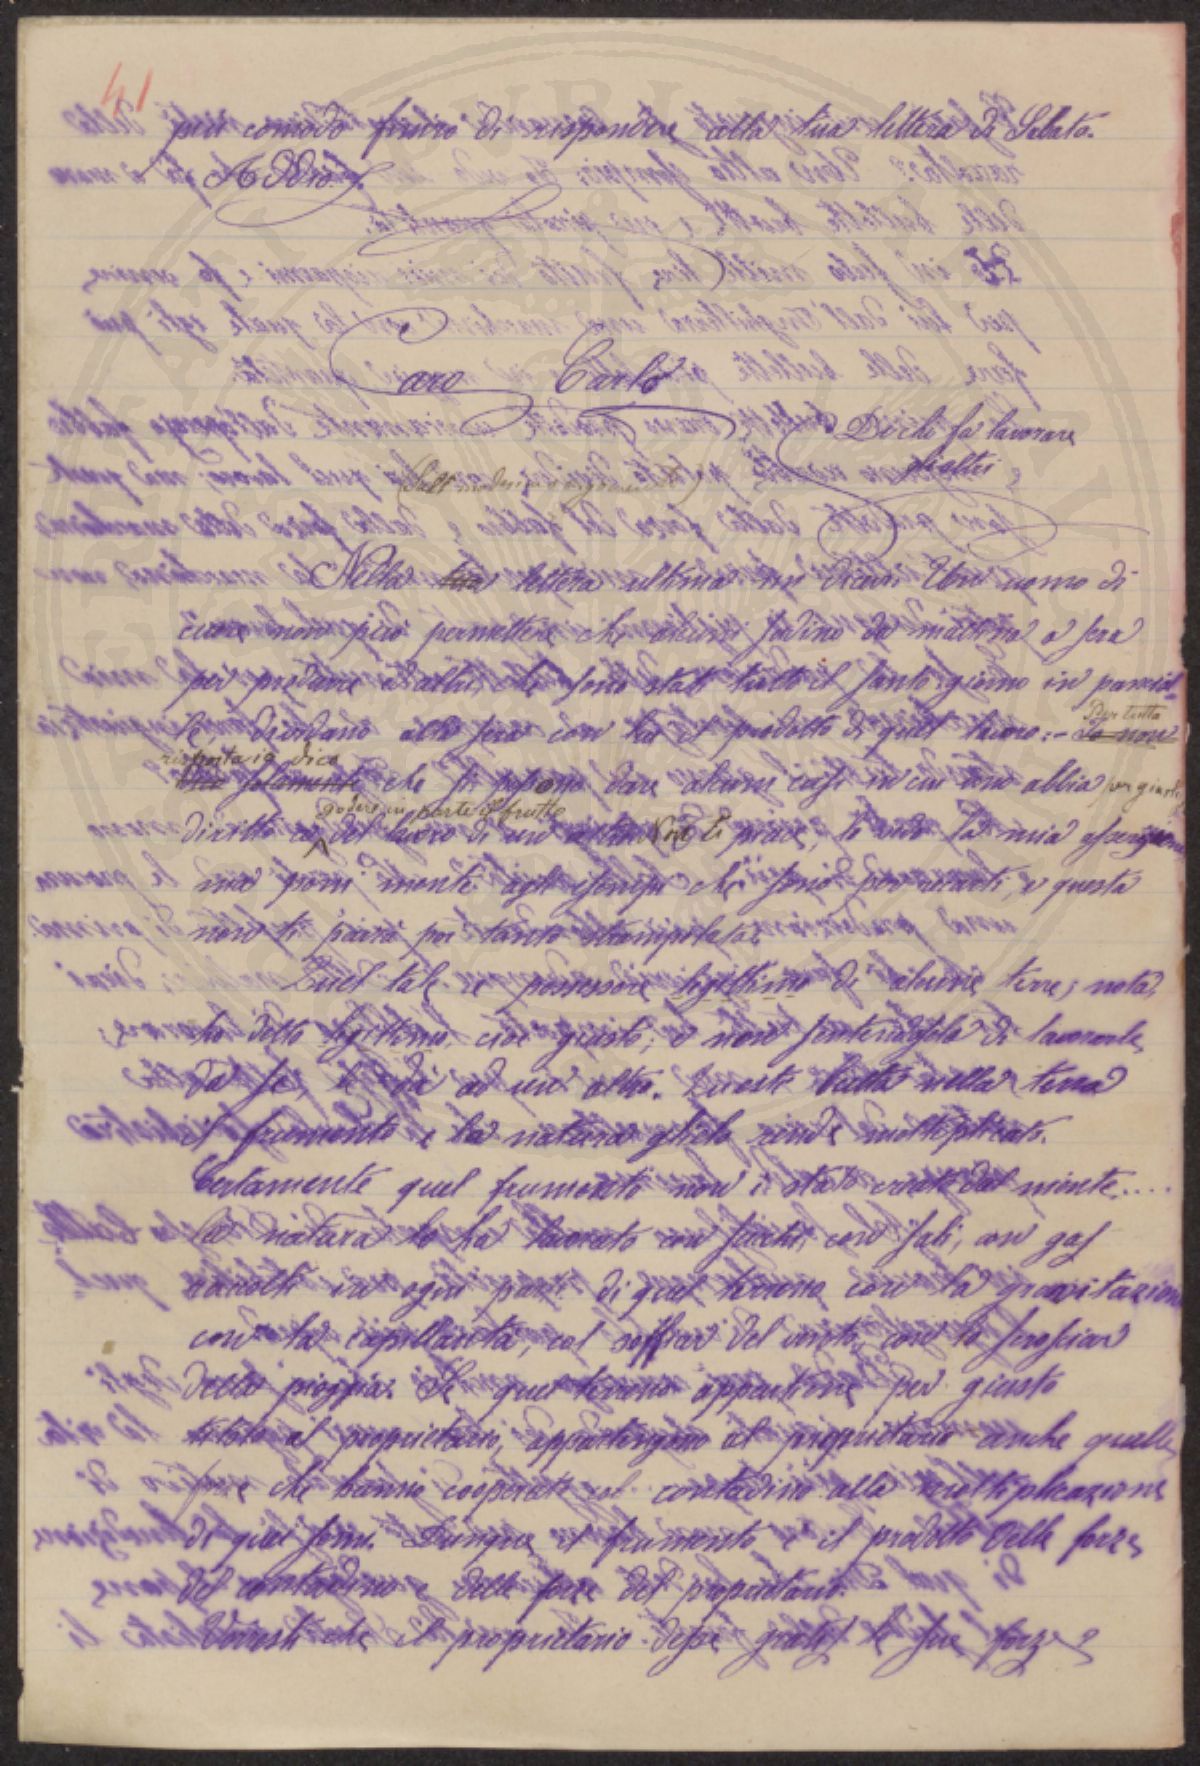 41
più comodo finirò di rispondere alla tua lettera di Sabato.
Addio.
Caro Carlo
Di chi fa lavorare
gli altri
Nella tua lettera ultima mi dicevi: Un uomo di
cuore non può permettere che alcuni sudino da mattina a sera
per predare ad altri, che sono stati tutto il santo giorno in panciol-
le, diandano alla sera con lui il prodotto di quel lavoro: – Io non
Per tutta
risposta io dico
solamente che si possono dare alcuni casi in cui uno abbia per giusto
godere in parte il frutto
diritto a del lavoro di un altro. Non ti piace, lo vedo la mia asserzione
ma poni mente agli esempi che sono per recarti, e questa
non ti parrà poi tanto strampalata.
Quel tale è possessore legittimo di alcune terre; nota,
ho detto legittimo, cioè giusto; e non sentendosela di lavorarle
da sé, le dà ad un altro. Questi butta nella terra
il frumento e la natura glielo rende moltiplicato.
Certamente quel frumento non è stato creato dal niente....
La natura lo ha lavorato con succhi, con sali, con gas
raccolti in ogni parte di quel terreno con la gravitazione
con la capillarità, col soffiar del vento, con lo scrosciar
della pioggia. Se quel terreno appartiene per giusto
titolo al proprietario, appartengono al proprietario anche quelle
forze che hanno cooperato col contadino alla moltiplicazione
di quei semi. Dunque il frumento è il prodotto delle forze
del contadino e delle forze del proprietario.
Vorresti che il proprietario desse gratis le sue forze?